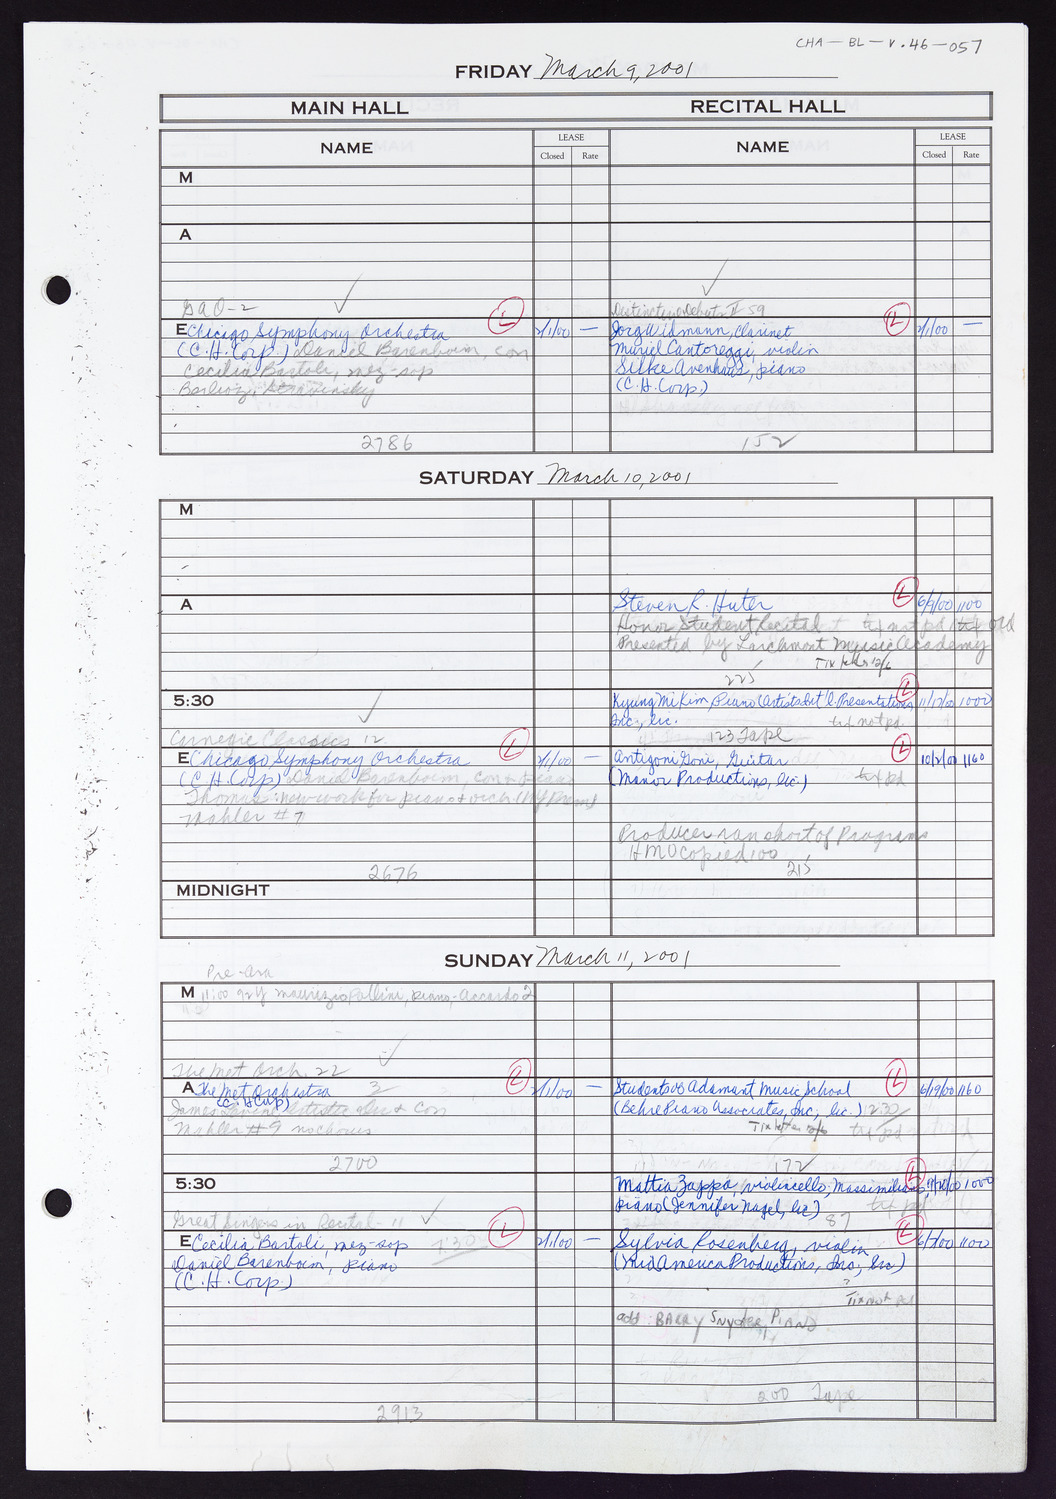 CHA-BL-v.46-057
FRIDAY March 9, 2001
MAIN HALL
RECITAL HALL
NAME
LEASE
Closed Rate
NAME
LEASE
Closed Rate
M
A
GAO-2
E Chicago Symphony Orchestra L 2/1/00 —
(C.H. Corp.) Daniel Barenboim, con
Cecilia Bartoli, mez-sop
Berlioz, Stravinsky
2786
Distinctive Debuts II 59
Jorg Widmann, Clarinet L 2/1/00 —
Muriel Cantoreggi, violin
Silke Avenhaus, piano
(C.H. Corp)
152
SATURDAY March 10, 2001
M
A
Steven R. Huter L 6/9/00 1100
Honor Student Recital txt not pd
Presented by Larchmont Music Academy
Tix letter 12/6
225
5:30
Kyung Mi Kim, Piano (Artists Int'l. Presentations L 11/17/00 1000
Inc., lic. txt not pd
123 Tape
Carnegie Classics 12
E Chicago Symphony Orchestra L 2/1/00 —
(C.H. Corp) Daniel Barenboim, con + piano
Thomas: new work for piano + orch (NY Prem)
Mahler #7
2676
Antigoni Goni, Guitar L 10/2/00 1160
(Manor Productions, lic.) txt pd
Producer ran short of Programs
HMO copied 100
215
MIDNIGHT
SUNDAY March 11, 2001
M
11:00 92Y Maurizio Pollini, piano, - Accardo 2
The Met Orch. 22
A The Met Orchestra 3 L 2/1/00 —
(C.H. Corp)
James Levine, Artistic Dir + Con
Mahler #9 no chorus
2700
Students of Adamant Music School L 6/19/00 1160
(Behre Piano Associates, Inc., lic.) 1230
Tix letter 12/6 txt pd
172
5:30
Mattia Zappa, violincello, Massimiliano L 1000
piano (Jennifer Nagel, lic) txt pd
87
Great Singers in Recital - 11
E Cecilia Bartoli, mez-sop 7:30 L 2/1/00 —
Daniel Barenboim, piano
(C.H. Corp)
2913
Sylvia Rosenberg, violin L 6/7/00 1100
(MidAmerica Productions, Inc., lic)
Tix not pd
add: BARRY Snyder, PIANO
200 Tape